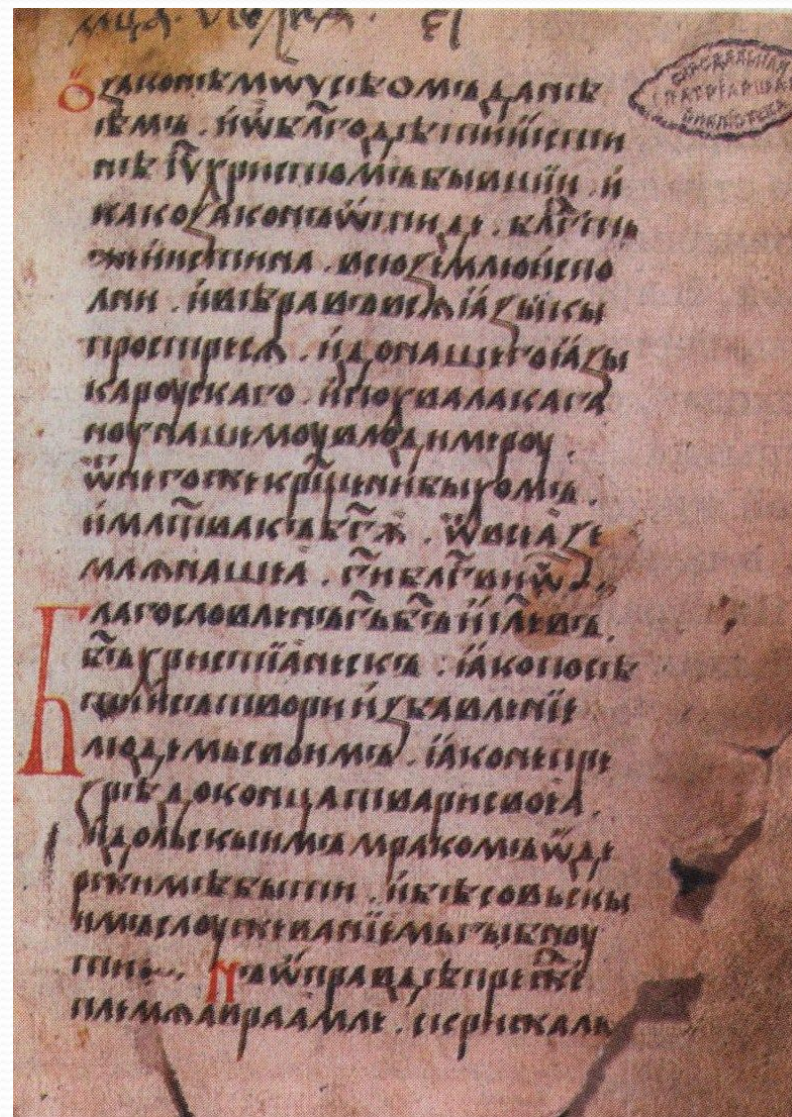 мц҃а. иꙋлиꙗ. еі
Ѡ҆ законѣ мѡѵсѣомъ данѣ
ѣмь. и҆ ѡ҆ бл҃годѣти и҆ і҆сти
нѣ і҆с҃ хри́стомъ бывшіи. и҆
како законъ ѿиде. бл҃гть
же и҆ истинна. всю землю и҆спо
лни. и҆ вѣра въ всѧ ꙗ҆зыкы
простресѧ. и҆ до нашего ꙗ҆зы
ка роускаго. и҆ похвала кага
ноу нашемоу влодимероу.
ѿ него же кр҃щени быхомъ.
и҆ мл҃тва къ бг҃ꙋ. ѿ всеꙗ҆ зе
млѧ нашеа҆. гс҃и бл҃гви ѡ҃че.
Благословленъ г҃ь б҃ъ і҆и҃левъ.
б҃ъ христіа҆нескъ. ꙗ҆ко посѣ
ти и сътвори и҆збавленіе
людемь своимъ. ꙗ҆ко не пре
зрѣ до конца твари своеа҆.
и҆дольскыимъ мракомъ ѡ҆де
ржимѣ быти. и҆ бѣсовьскы
имъ слоужеваніемь гыбноу
ти. Нъ ѡ҆правдѣ прежⷣе
племѧ а҆враамле. скрижаль
СИНОДАЛЬНАЯ
(ПАТРІАРШАЯ)
БИБЛІОТЕКА